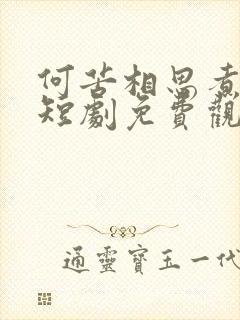 何苦相思煮
短劇免費觀
通靈寶玉一代